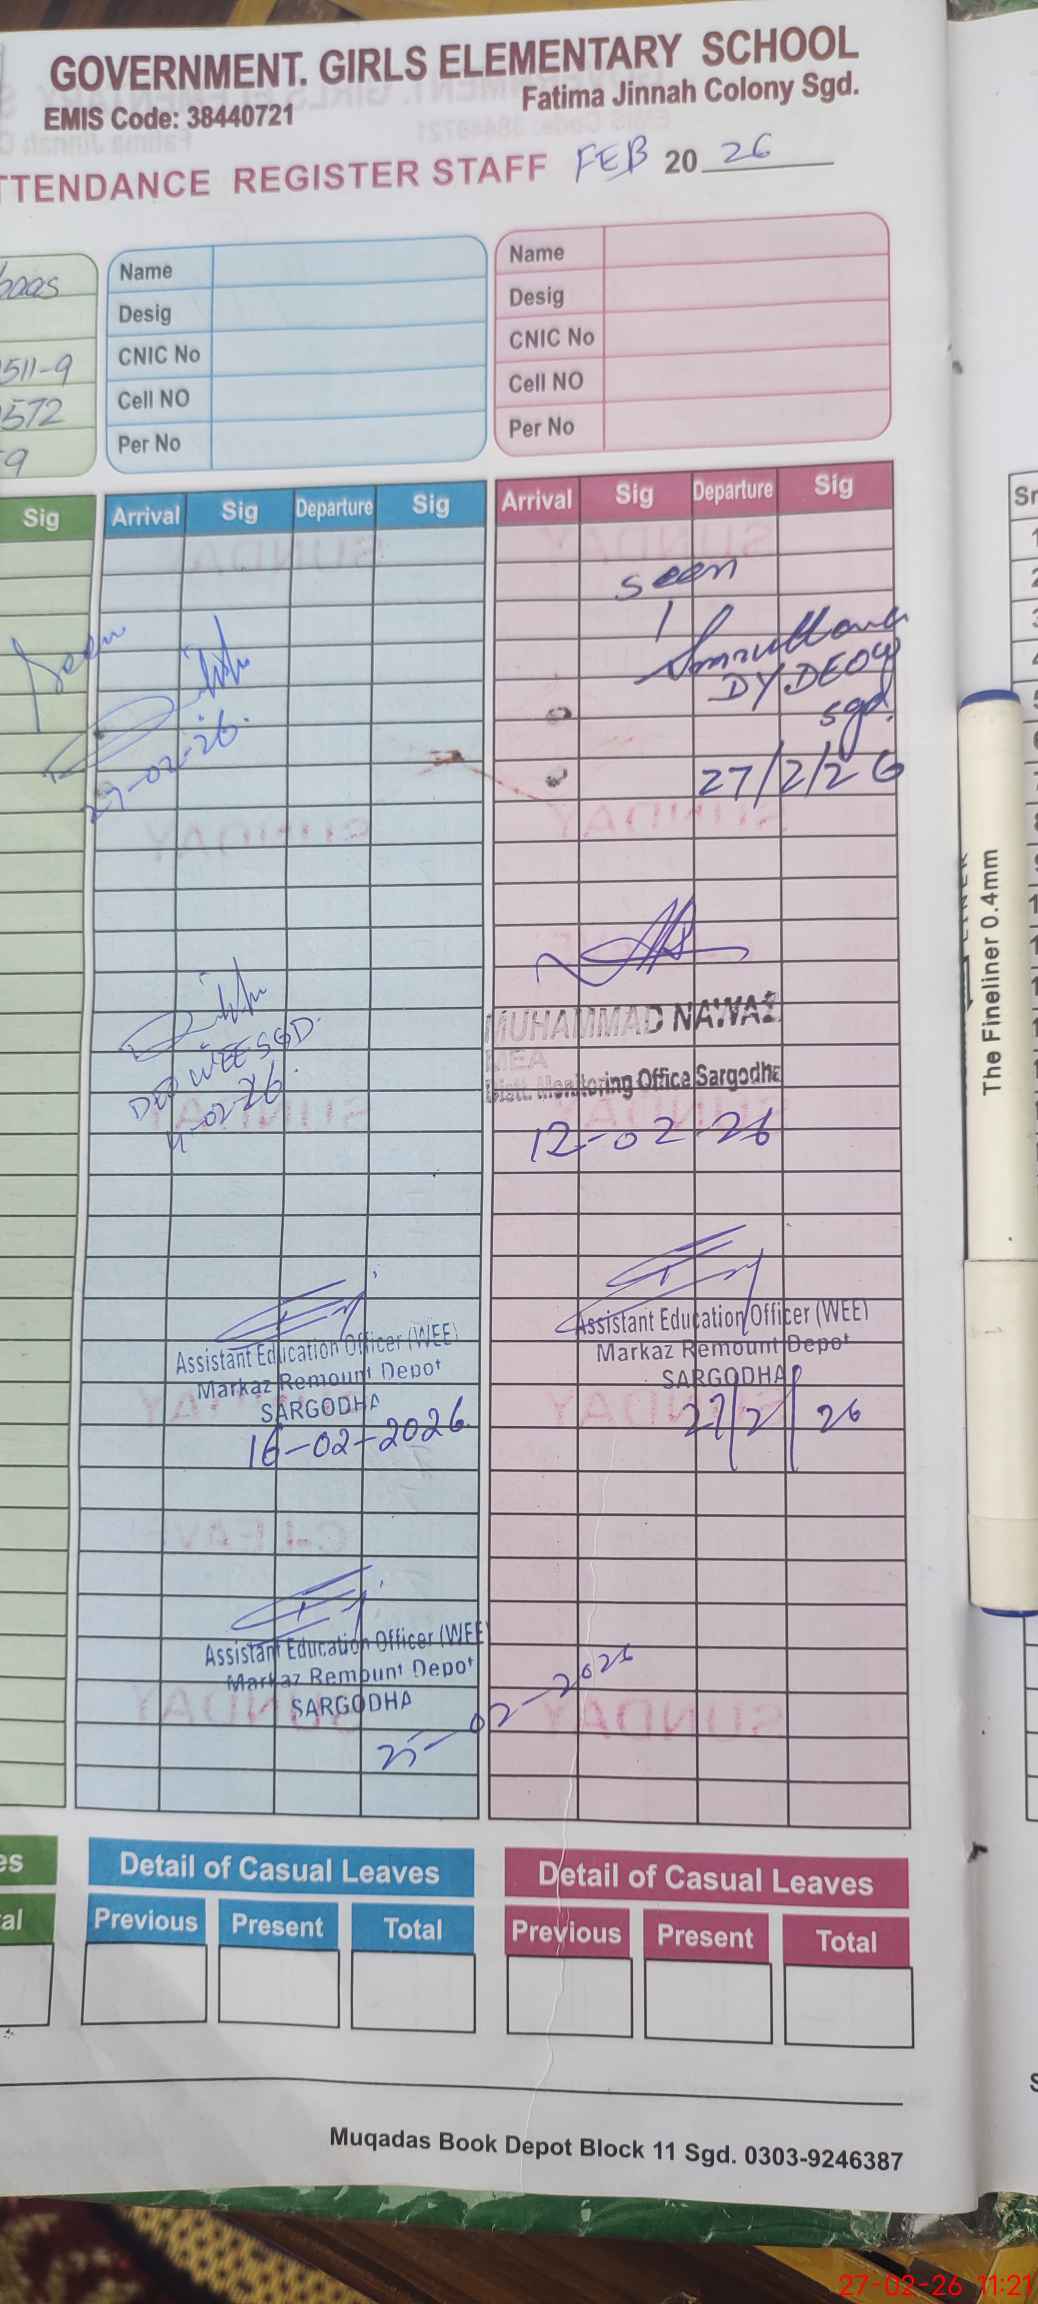 GOVERNMENT. GIRLS ELEMENTARY SCHOOL
EMIS Code: 38440721
Fatima Jinnah Colony Sgd.
TTENDANCE REGISTER STAFF FEB 20 26
baas
511-9
572
9
Name
Desig
CNIC No
Cell NO
Per No
Name
Desig
CNIC No
Cell NO
Per No
Sig
Arrival Sig Departure Sig
Arrival Sig Departure Sig
Seen
-02-26
seen
DY.DEO
sgd.
27/2/26
WEE SGD.
-02-26.
MUHAMMAD NAWAZ
MEA
Distt. Monitoring Office Sargodha
12-02-26
Assistant Education Officer (WEE)
Markaz Remount Depot
SARGODHA
16-02-2026
Assistant Education Officer (WEE)
Markaz Remount Depot
SARGODHA
27/2/26
Assistant Education Officer (WEE
Markaz Remount Depot
SARGODHA
25-02-2026
es
al
Detail of Casual Leaves
Previous Present Total
Detail of Casual Leaves
Previous Present Total
Muqadas Book Depot Block 11 Sgd. 0303-9246387
The Fineliner 0.4mm
Sr
27-02-26 11:21